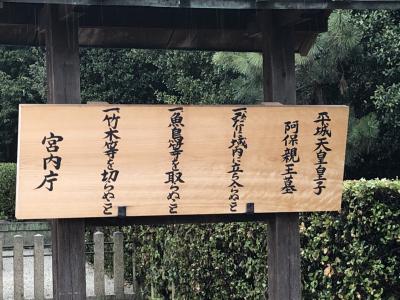 平城天皇皇子
阿保親王墓
一みだりに域内に立ち入らぬこと
一魚鳥等を取らぬこと
一竹木等を切らぬこと
宮内庁